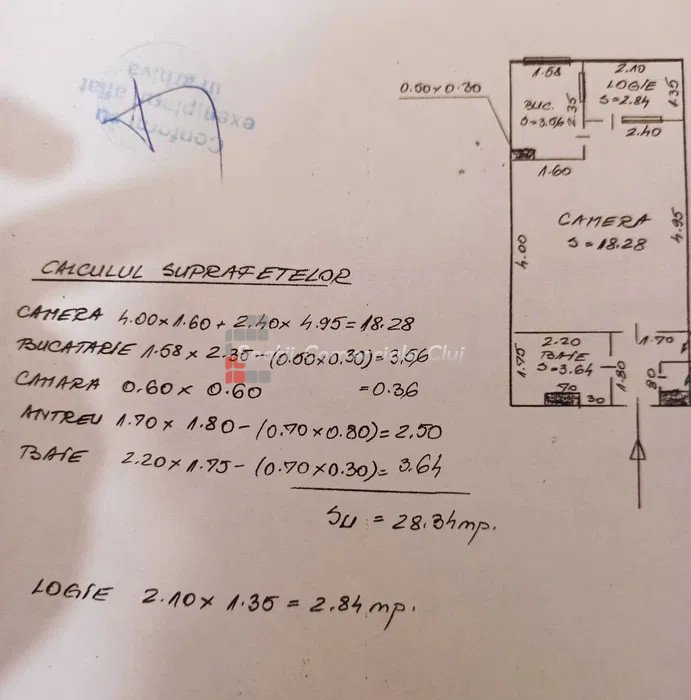 Conform cu
exemplarul aflat
în arhivă
0.50 x 0.30
1.58
2.10
LOGIE
S = 2.84
1.35
BUC.
S = 3.56
2.35
2.40
1.60
CAMERA
S = 18.28
4.00
4.95
CALCULUL SUPRAFETELOR
CAMERA 4.00 x 1.60 + 2.40 x 4.95 = 18.28
BUCATARIE 1.58 x 2.35 - (0.50 x 0.30) = 3.56
CAMARA 0.60 x 0.60 = 0.36
ANTREU 1.70 x 1.80 - (0.70 x 0.80) = 2.50
BAIE 2.20 x 1.75 - (0.70 x 0.30) = 3.64
SU = 28.34 mp.
LOGIE 2.10 x 1.35 = 2.84 mp.
2.20
1.70
BAIE
S = 3.64
1.75
1.80
80
70
30